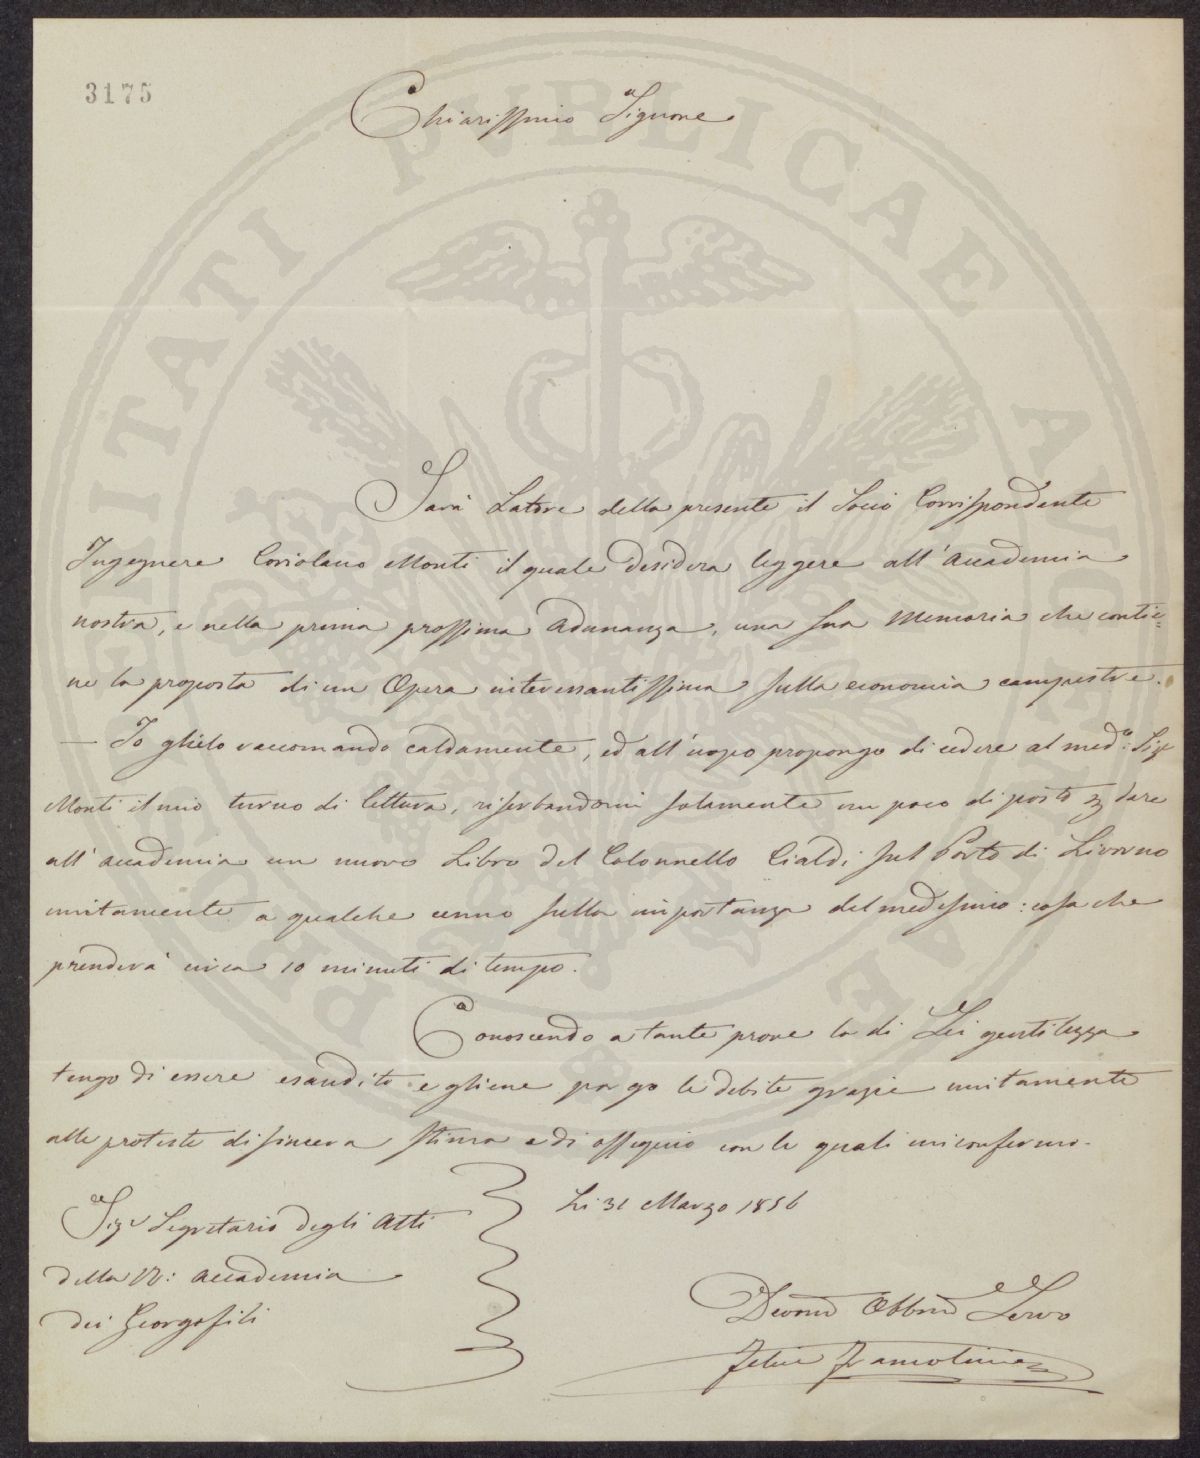 3175
Chiarissimo Signore
Sarà Latore della presente il Socio Corrispondente
Ingegnere Coriolano Monti il quale desidera leggere all'Accademia
nostra, e nella prima prossima Adunanza, una sua Memoria che contie=
ne la proposta di un Opera interessantissima sulla economia campestre.
— Io glielo raccomando caldamente, ed all'uopo propongo di cedere al med.o Sigr
Monti il mio turno di lettura, riserbandomi solamente un poco di posto dare
all'Accademia un nuovo Libro del Colonnello Cialdi sul Porto di Livorno
unitamente a qualche cenno sulla importanza del medesimo: cosa che
prenderà circa 10 minuti di tempo.
Conoscendo a tante prove la di Lei gentilezza
tengo di essere esaudito e gliene porgo le debite grazie unitamente
alle proteste di sincera stima e di ossequio con le quali mi confermo.
Li 31 Marzo 1856
Sigr Segretario degli Atti
della R: Accademia
dei Georgofili
Devono Obbmo Servo
Felice Francolini
PROSPERITATI PVBLICAE AVGENDAE